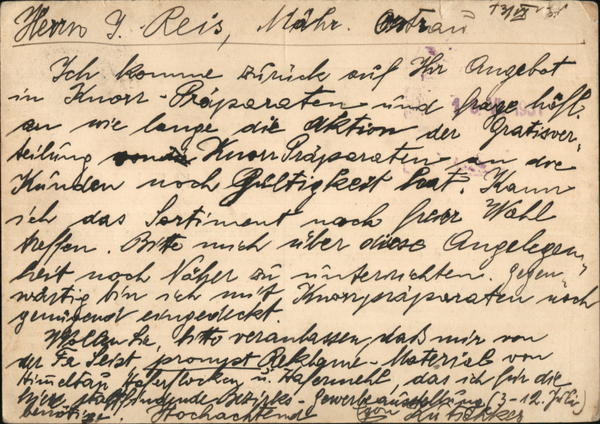 Herrn J. Reis, Mähr. Ostrau
Ich komme zurück auf Ihr Angebot
in Knorr-Präparaten und frage höfl.
an wie lange die Aktion der Gratisver-
teilung von Knorr Präparaten an die
Kunden noch Gültigkeit hat. Kann
ich das Sortiment nach freier Wahl
treffen. Bitte mich über diese Angelegen-
heit noch Näher zu unterrichten. Gegen-
wärtig bin ich mit Knorrpräparaten noch
genügend eingedeckt.
Wollen Sie, bitte veranlassen, daß mir von
der Fa prompt Reklame-Material von
Haferflocken u. Hafermehl, das ich für die
hier stattfindende Bezirks-Gewerbeausstellung (3-12. Juli)
benötige. Hochachtend